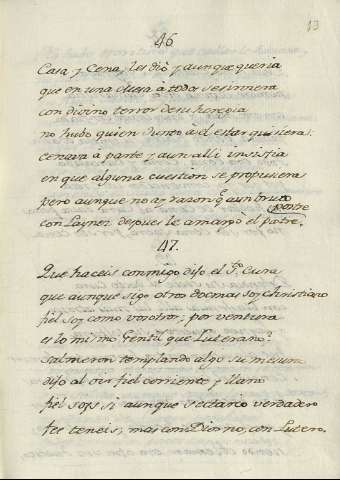 13
46
Casa y Cena, les diò y aunque queria
que en una à todos
con divino terror de su heregia
no hubo quien junto a el estar quisiera:
cenava à parte y aun alli insistia
en que alguna cuestion se propusiera
pero aunque no ay razon q̃ a un bruto
postre
con Laynez despues le amargò el
47.
Que haceis conmigo dijo el S.r Cura
que aunque sigo otro soy Christiano
fiel soy como vosotros; por ventura
es lo mismo Gentil que Luterano?
Salmeron templando algo su mesura
dijo al oir fiel corriente y llano
fiel sois si aunque sectario verdadero
fee teneis, mas con Dios no, con Lutero.